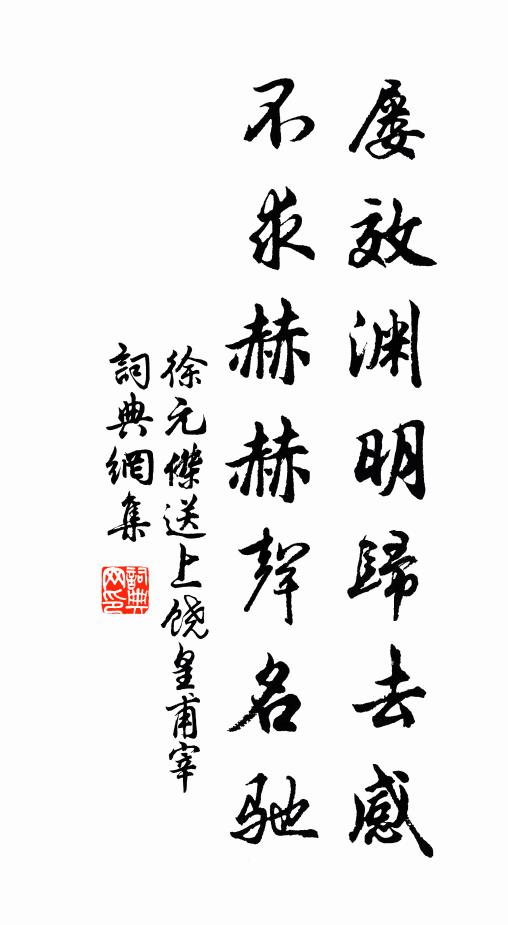 屡效渊明歸去感
不求赫赫聲名馳
徐元傑送上饶皇甫宰
詞典網集
詞典网印